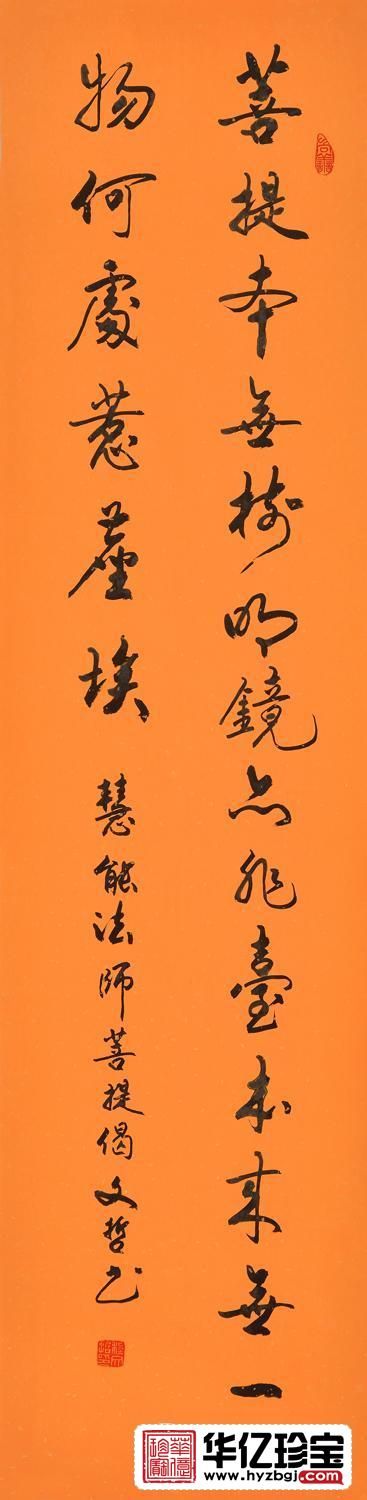 菩提本無樹明鏡亦非臺本來無一
物何處惹塵埃
慧能法師菩提偈 文哲书
华亿珍宝
www.hyzbgj.com